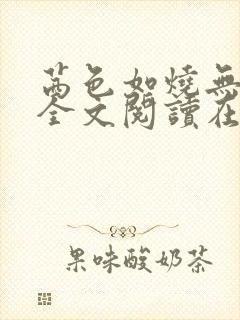 茜色如燒無
全文閱讀在
果味酸奶茶